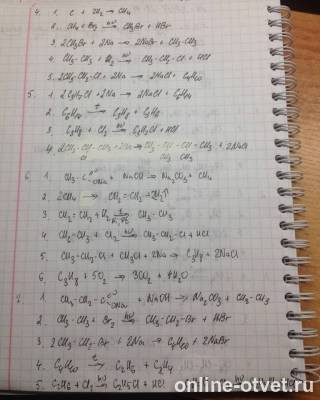 4. 1. C + 2H₂ → CH₄
2. CH₄ + Br₂ →(hν) CH₃Br + HBr
3. 2CH₃Br + 2Na → 2NaBr + CH₃-CH₃
4. CH₃-CH₃ + Cl₂ →(hν) CH₃-CH₂-Cl + HCl
5. 2CH₃-CH₂-Cl + 2Na → 2NaCl + C₄H₁₀
5. 1. 2C₃H₇Cl + 2Na → 2NaCl + C₆H₁₄
2. C₆H₁₄ →(t) C₃H₈ + C₃H₆
3. C₃H₈ + Cl₂ →(hν) C₃H₇Cl + HCl
4. 2CH₃-CH-CH₃ + 2Na → CH₃-CH-CH-CH₃ + 2NaCl
Cl CH₃ CH₃
6. 1. CH₃-C(=O)ONa + NaOH → Na₂CO₃ + CH₄
2. 2CH₄ → CH₂=CH₂ + 2H₂↑
3. CH₂=CH₂ + H₂ → CH₃-CH₃
4. CH₃-CH₃ + Cl₂ →(hν) CH₃-CH₂-Cl + HCl
5. CH₃-CH₂-Cl + CH₃Cl + 2Na → C₃H₈ + 2NaCl
6. C₃H₈ + 5O₂ → 3CO₂ + 4H₂O
7. 1. CH₃-CH₂-C(=O)ONa + NaOH → Na₂CO₃ + CH₃-CH₃
2. CH₃-CH₃ + Br₂ →(hν) CH₃-CH₂-Br + HBr
3. 2CH₃-CH₂-Br + 2Na → C₄H₁₀ + 2NaBr
4. C₄H₁₀ →(t) C₂H₆ + C₂H₄
5. C₂H₆ + Cl₂ →(hν) C₂H₅Cl + HCl
online-otvet.ru